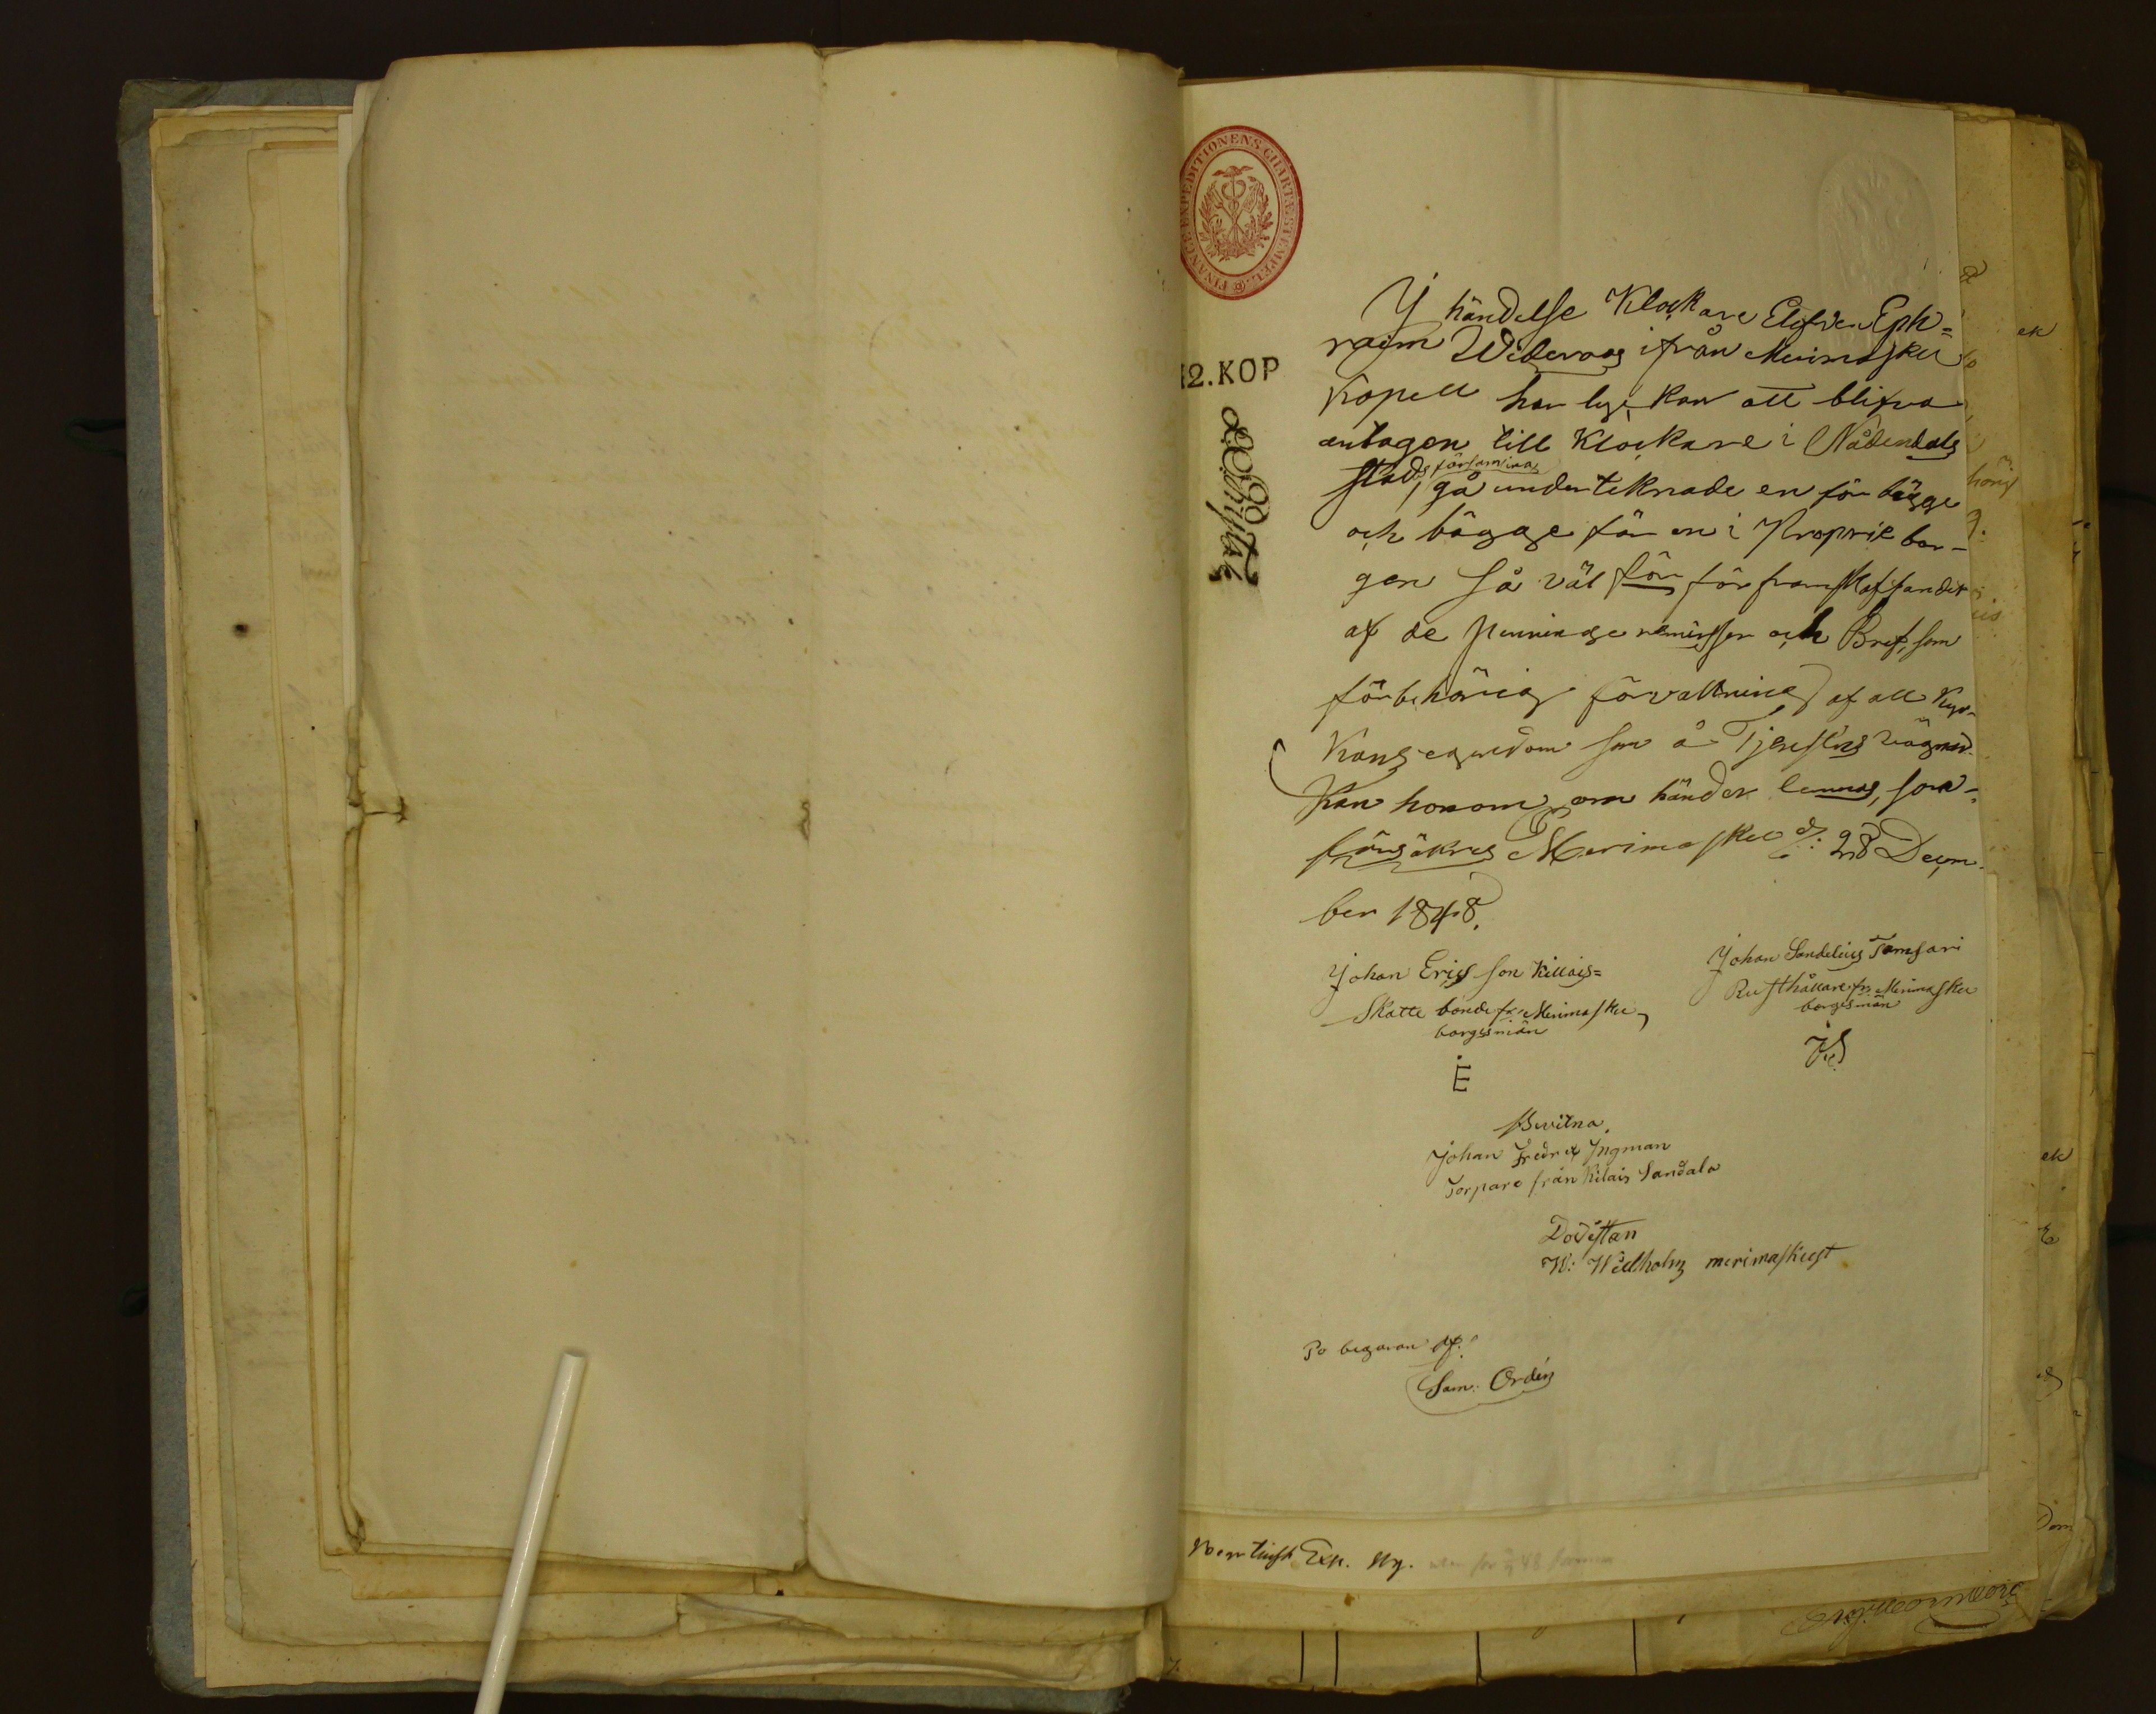 FINANCE EXPEDITIONENS CHARTÆ STEMPEL.
12.KOP
I händelse Klockare Eleven Eph=
raim Wideroos ifrån Merimasku
Kapell har lyckan att blifva
antagen till Klockare i Nådendals
stads församling, gå undertecknade en för bägge
och bägge för en i Proprie bor-
gen så väl för för framskaffandet
af de Penninge remisser och Bref, som
förbehörig förvaltning af all Kyr-
kans egendom som å Tjenstens vägnar
kan honom om händer lemnas, som
försäkres Merimasku d: 28 Decem-
ber 1848.
Johan Ericsson Killais=
Skatte bonde fr: Merimasku
borgesmän
E
Johan Sandelius Tamsari
Rusthållare fr: Merimasku
borgesmän
JS
Bevitna.
Johan Fredric Ingman
Torpare från Kilais Sandala
Dovistan
W: Widholm merimaskust
På begäran af:
Sam: Ordén
Exp.